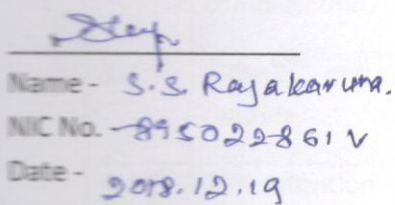 Name - S.S. Rajakaruna.
NIC No. - 895022861V
Date - 2018.12.19